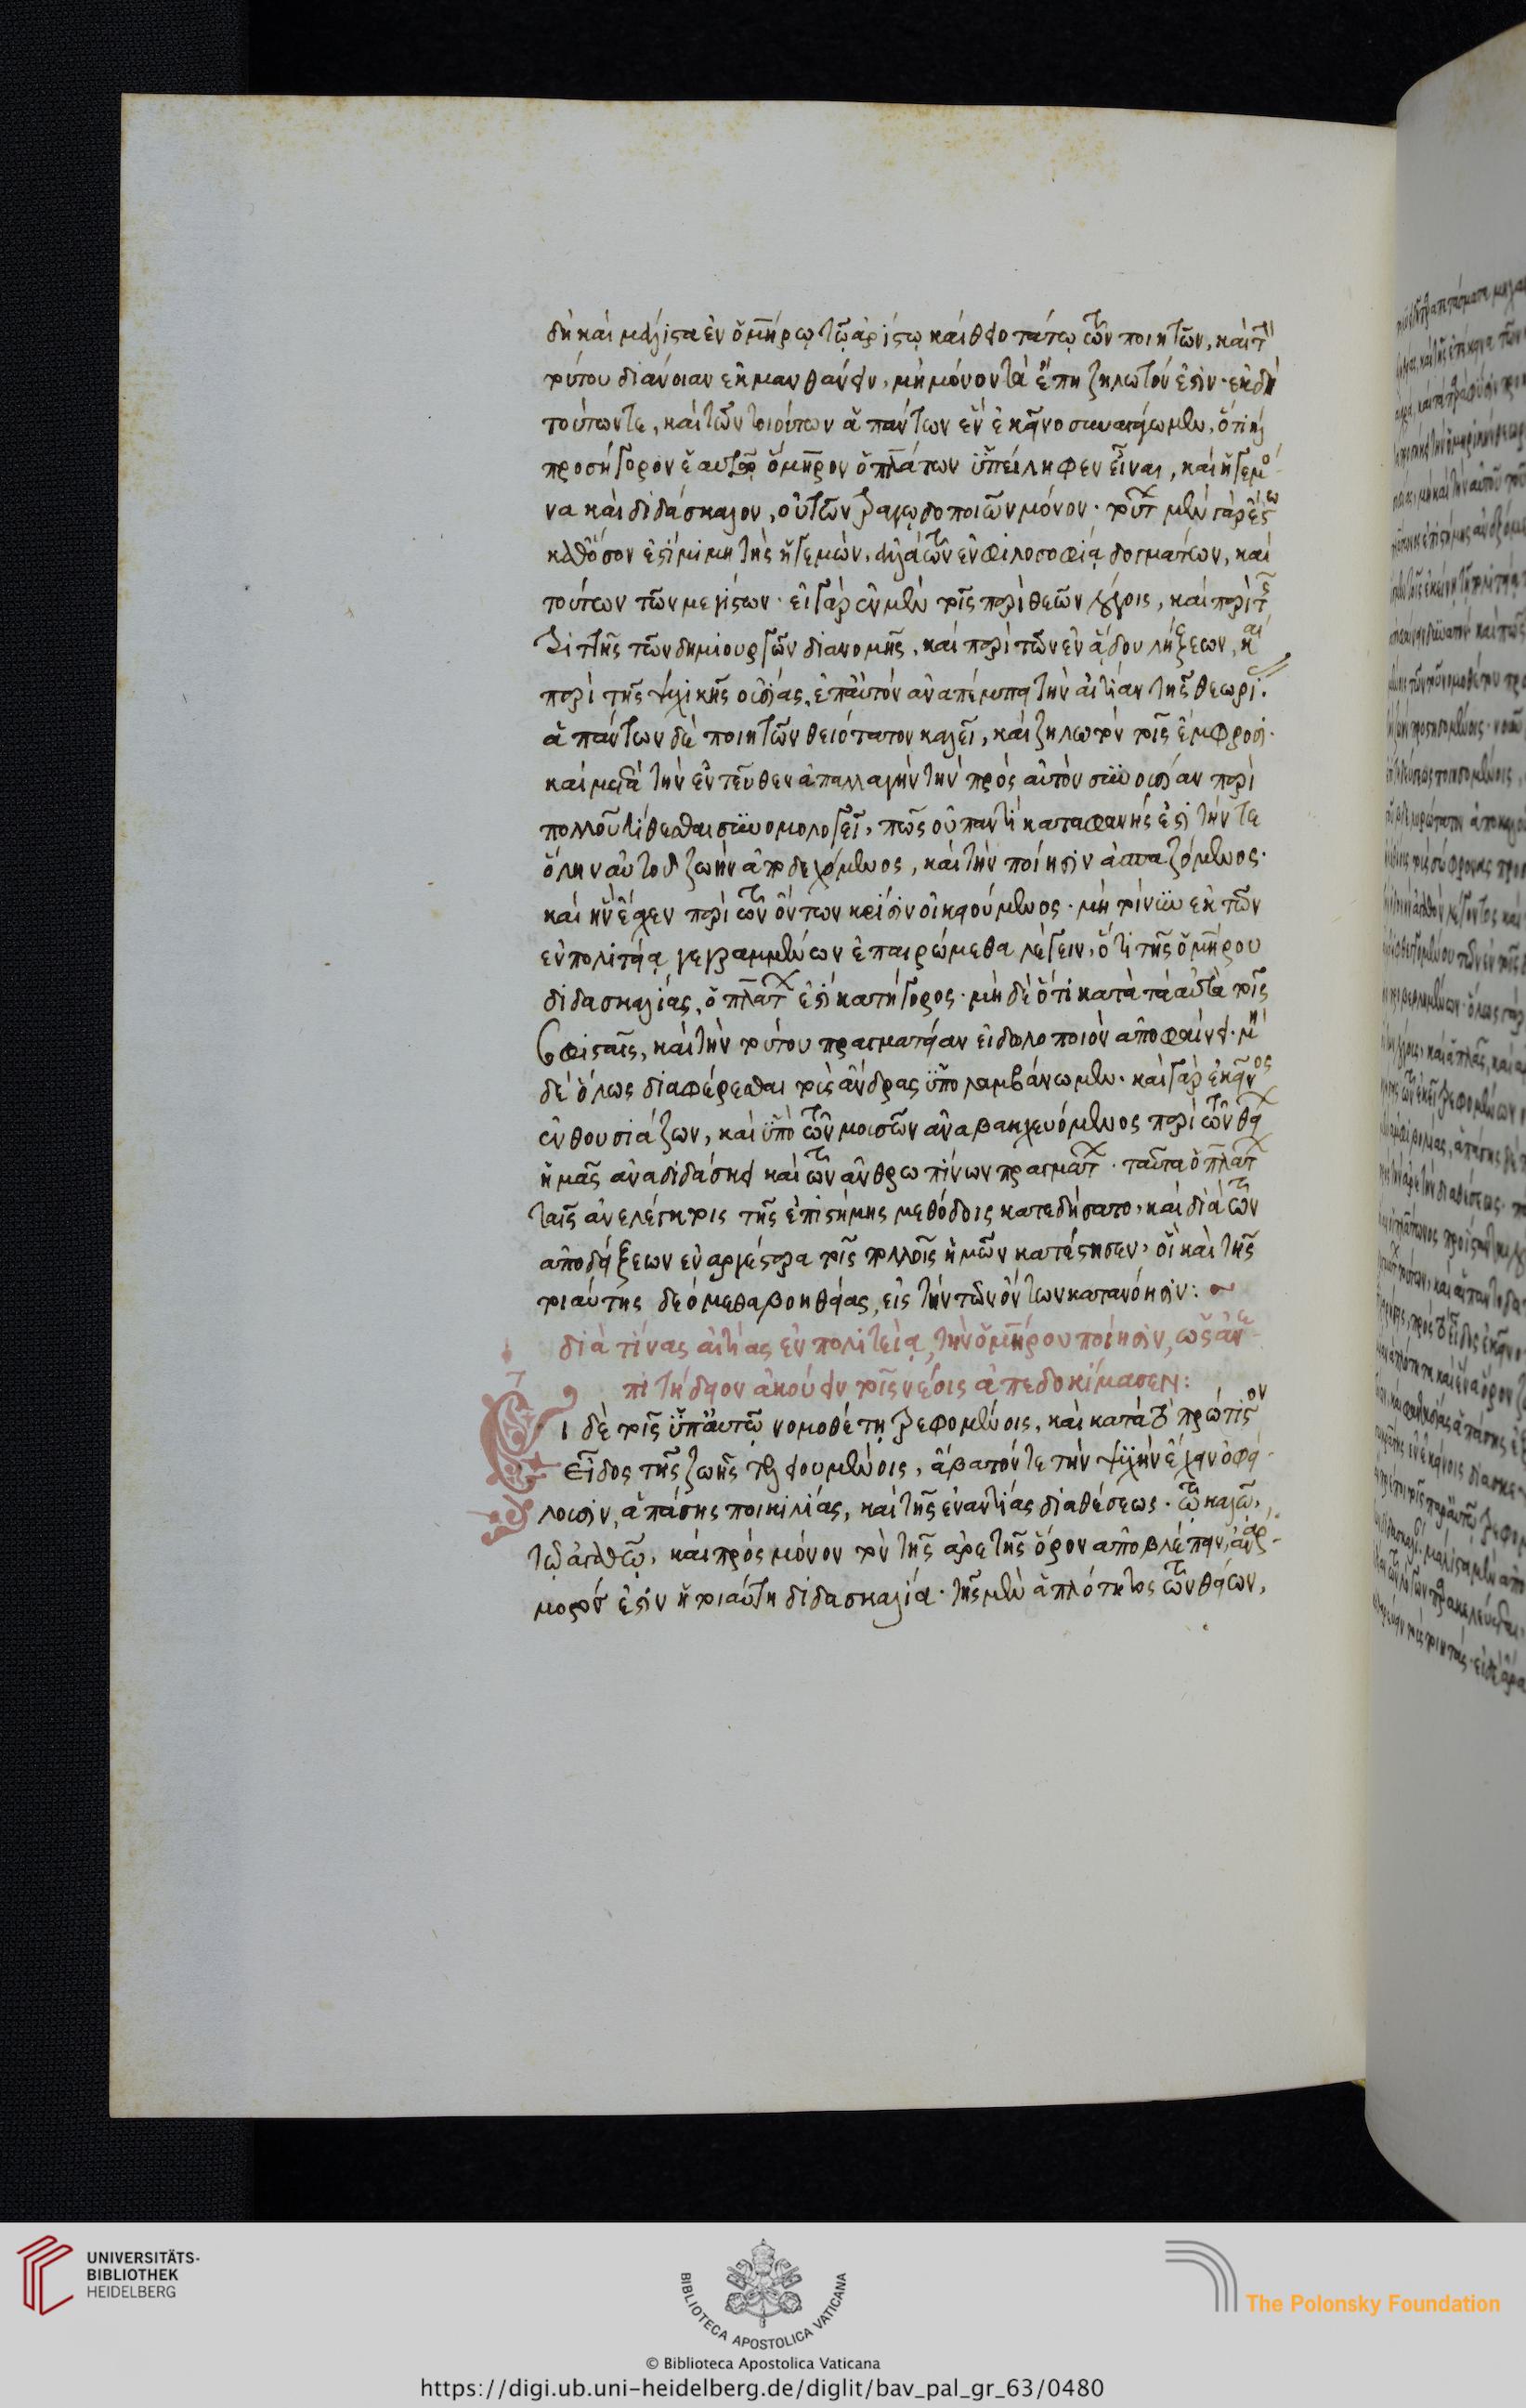 δὴ καὶ μάλιστα ἐν ὁμήρῳ τῷ ἀρίστῳ καὶ θειοτάτῳ τῶν ποιητῶν, καὶ τὴν
τούτου διάνοιαν ἐκμανθάνειν, μὴ μόνον τὰ ἔπη ζηλωτόν ἐστιν. ἐκ δὴ
τούτων τε, καὶ τῶν τοιούτων ἁπάντων ἓν ἐκεῖνο συναγάγωμεν, ὅτι καὶ
προσήγορον ἑαυτῷ ὅμηρον ὁ πλάτων ὑπείληφεν εἶναι, καὶ ἡγεμό
να καὶ διδάσκαλον, οὐ τῶν τραγῳδοποιῶν μόνον. τούτων μὲν γάρ ἐστιν
καθόσον ἐστὶ μιμητὴς ἡγεμών, ἀλλὰ τῶν ἐν φιλοσοφίᾳ δογμάτων, καὶ
τούτων τῶν μεγίστων. εἰ γὰρ ἐν μὲν τοῖς περὶ θεῶν λόγοις, καὶ περὶ τῆς
τριττῆς τῶν δημιουργῶν διανομῆς, καὶ περὶ τῶν ἐν ᾅδου λήξεων, καὶ
περὶ τῆς ψυχικῆς οὐσίας, ἐπ' αὐτὸν ἀναπέμπει τὴν αἰτίαν τῆς θεωρί.
ἁπάντων δὲ ποιητῶν θειότατον καλεῖ, καὶ ζηλωτὸν τοῖς ἔμφροσι.
καὶ μετὰ τὴν ἐντεῦθεν ἀπαλλαγὴν τὴν πρὸς αὐτὸν συνουσίαν περὶ
πολλοῦ τίθεσθαι συνομολογεῖ, πῶς οὐ παντὶ καταφανής ἐστι τήν τε
ὅλην αὐτοῦ ζωὴν ἀποδεχόμενος, καὶ τὴν ποίησιν ἀσπαζόμενος.
καὶ ἣν ἔχει περὶ τῶν ὄντων κρίσιν οἰκειούμενος. μὴ τοίνυν ἐκ τῶν
ἐν πολιτείᾳ γεγραμμένων ἐπαιρώμεθα λέγειν, ὅτι τῆς ὁμήρου
διδασκαλίας, ὁ πλάτων ἐστὶ κατήγορος. μὴ δὲ ὅτι κατὰ τὰ αὐτὰ τοῖς
σοφισταῖς, καὶ τὴν τούτου πραγματείαν εἰδωλοποιὸν ἀποφαίνει. μὴ
δὲ ὅλως διαφέρεσθαι τοὺς ἄνδρας ὑπολαμβάνωμεν. καὶ γὰρ ἐκεῖνος
ἐνθουσιάζων, καὶ ὑπὸ τῶν μουσῶν ἀναβακχευόμενος περὶ τῶν θείων
ἡμᾶς ἀναδιδάσκει καὶ τῶν ἀνθρωπίνων πραγμάτων. ταῦτα ὁ πλάτων
ταῖς ἀνελέγκτοις τῆς ἐπιστήμης μεθόδοις κατεδήσατο, καὶ διὰ τῶν
ἀποδείξεων ἐναργέστερα τοῖς πολλοῖς ἡμῶν κατέστησεν, οἳ καὶ τῆς
τοιαύτης δεόμεθα βοηθείας, εἰς τὴν τῶν ὄντων κατανόησιν: ~
διὰ τίνας αἰτίας ἐν πολιτείᾳ, τὴν ὁμήρου ποίησιν, ὡς ἀνε
πιτήδειον ἀκούειν τοῖς νέοις ἀπεδοκίμασεν:
Εἰ δὲ τοῖς ὑπ' αὐτῷ νομοθέτῃ τρεφομένοις, καὶ κατὰ τὸ πρώτιστον
εἶδος τῆς ζωῆς τελειουμένοις, ἄβατόν τε τὴν ψυχὴν ἔχειν ὀφεί
λουσιν, ἁπάσης ποικιλίας, καὶ τῆς ἐναντίας διαθέσεως. τῷ καλῷ,
τῷ ἀγαθῷ, καὶ πρὸς μόνον τὸν τῆς ἀρετῆς ὅρον ἀποβλέπειν, ἀναρ
μοστόν ἐστιν ἡ τοιαύτη διδασκαλία. τῆς μὲν ἁπλότητος τῶν θείων,
UNIVERSITÄTS-
BIBLIOTHEK
HEIDELBERG
BIBLIOTECA APOSTOLICA VATICANA
The Polonsky Foundation
© Biblioteca Apostolica Vaticana
https://digi.ub.uni-heidelberg.de/diglit/bav_pal_gr_63/0480